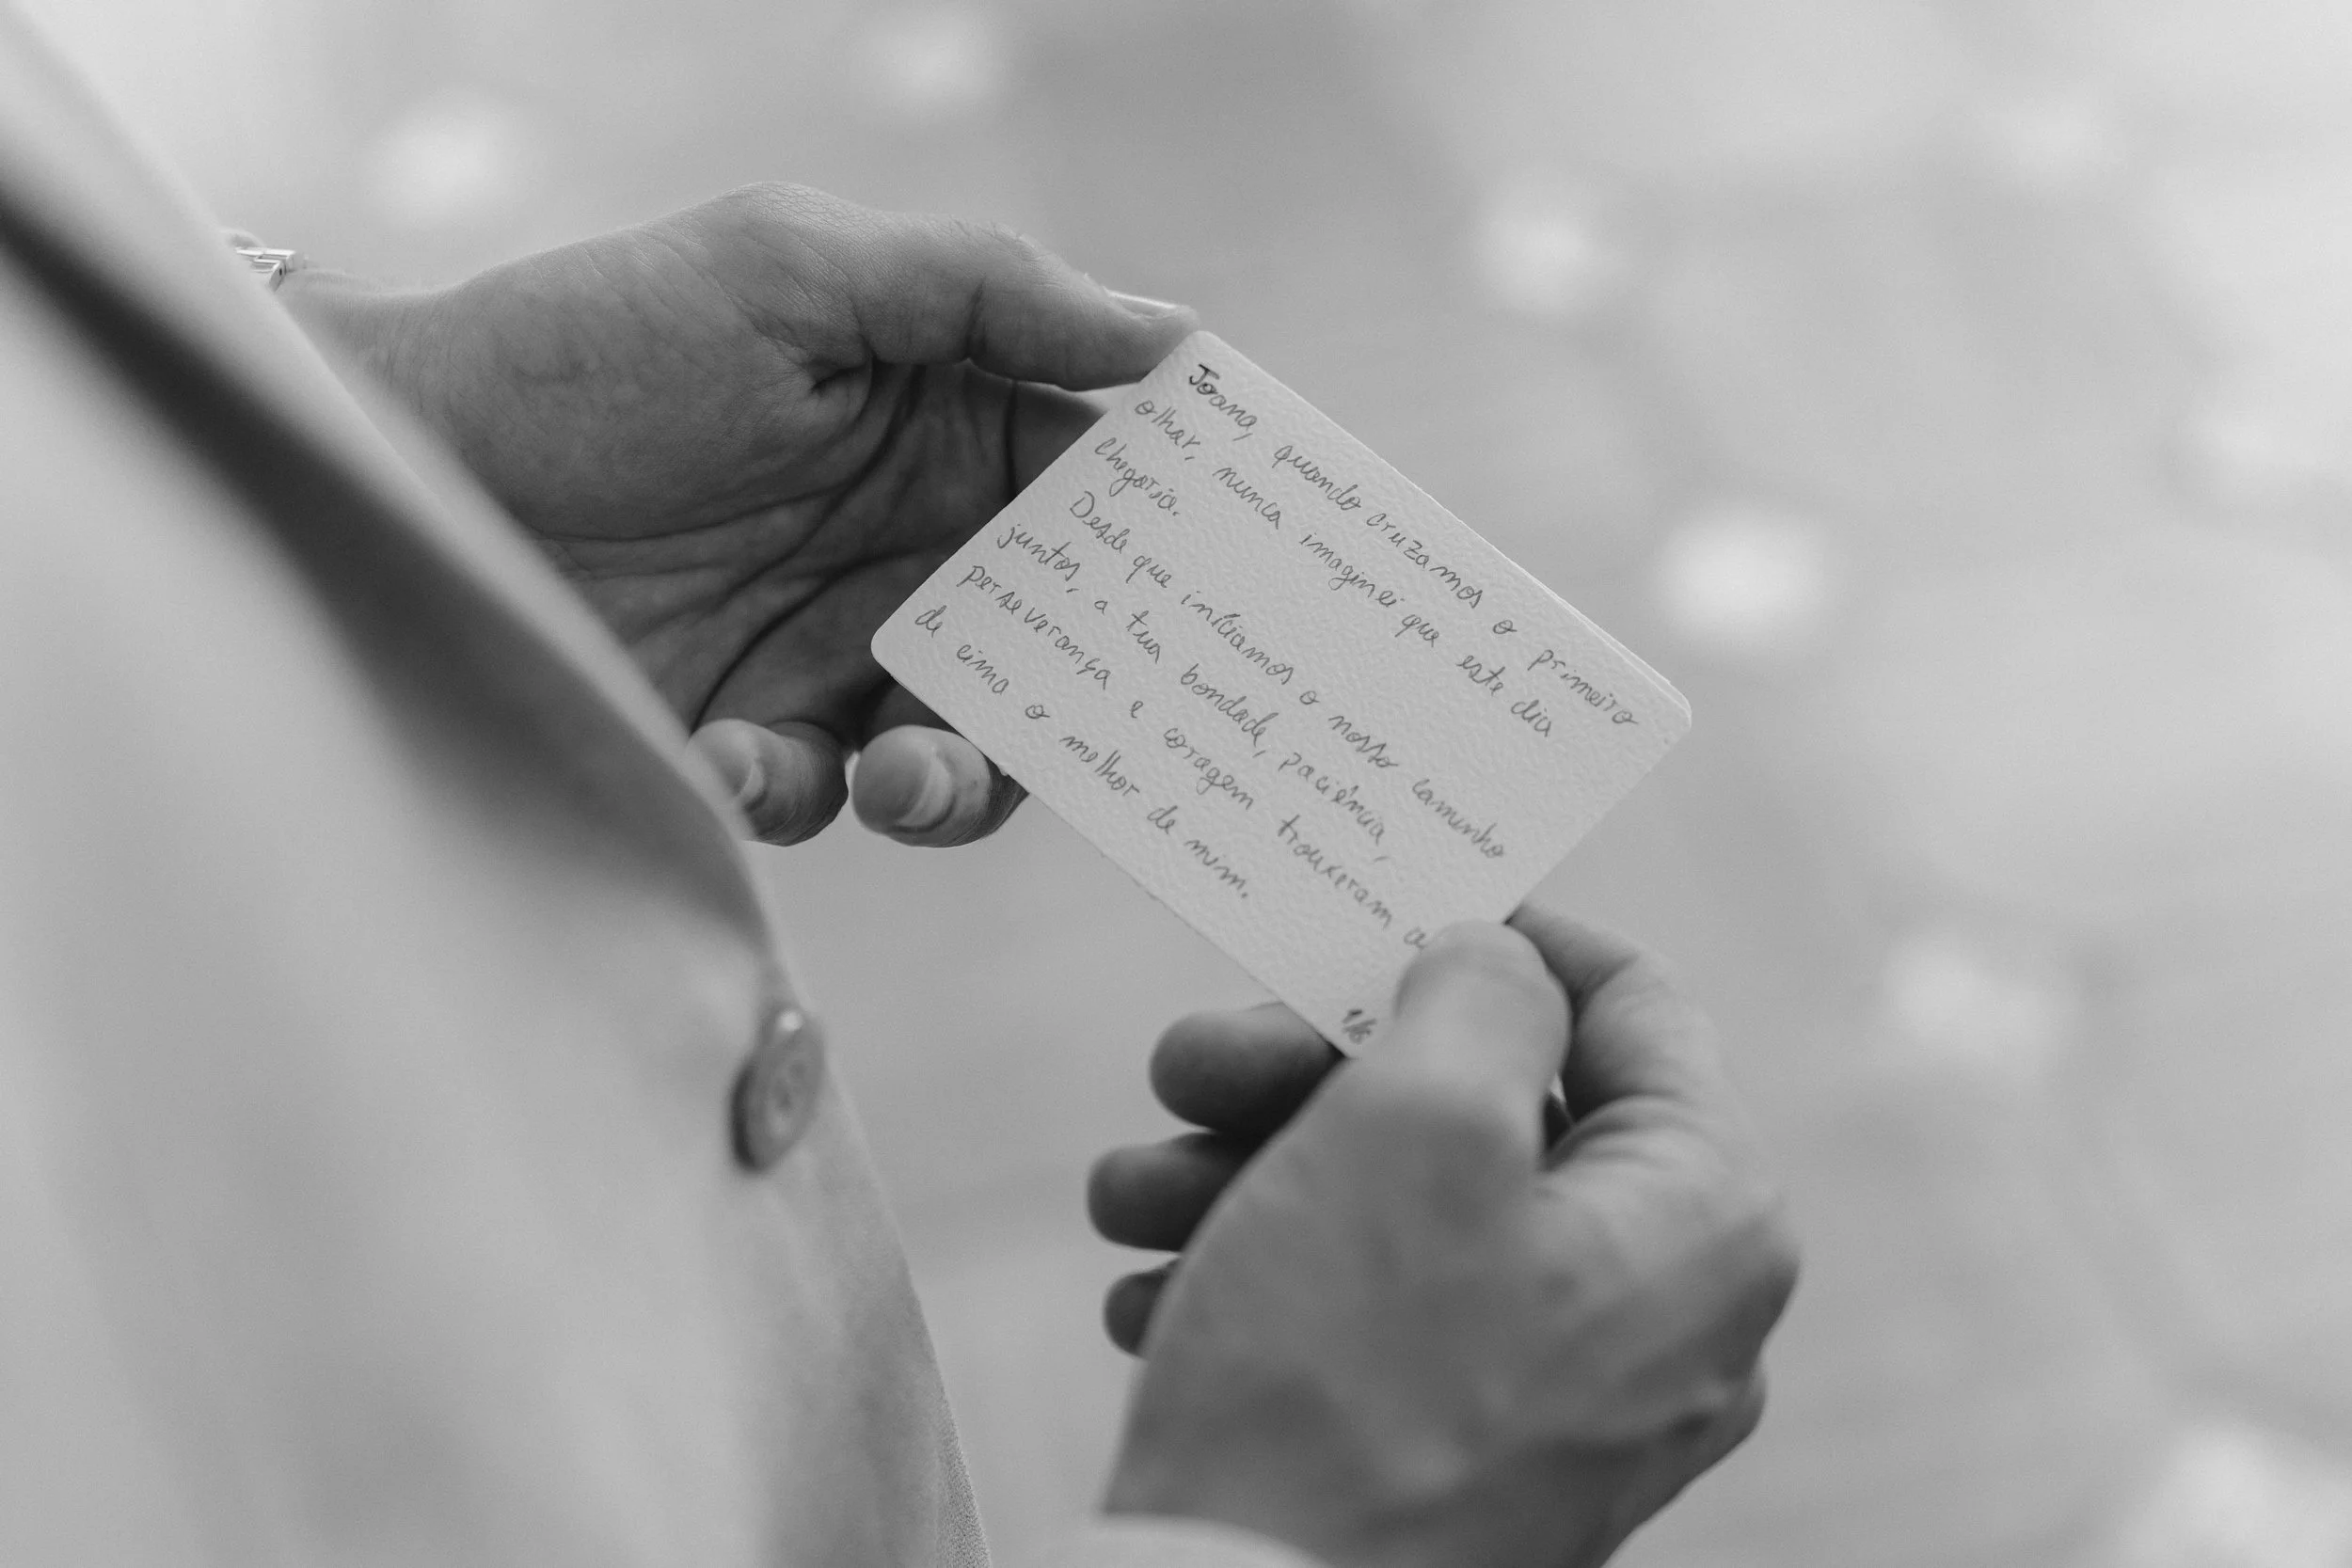 Joana, quando cruzamos o primeiro
olhar, nunca imaginei que este dia
chegaria.
Desde que iniciamos o nosso caminho
juntos, a tua bondade, paciência,
perseverança e coragem trouxeram ao
de cima o melhor de mim.
1/8